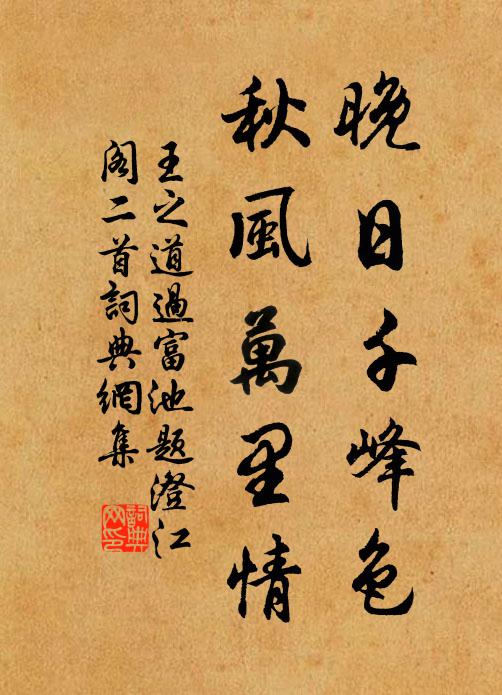 晚日千峰色
秋風萬里情
王之道過富池題澄江
閣二首詞典網集
詞典
网印